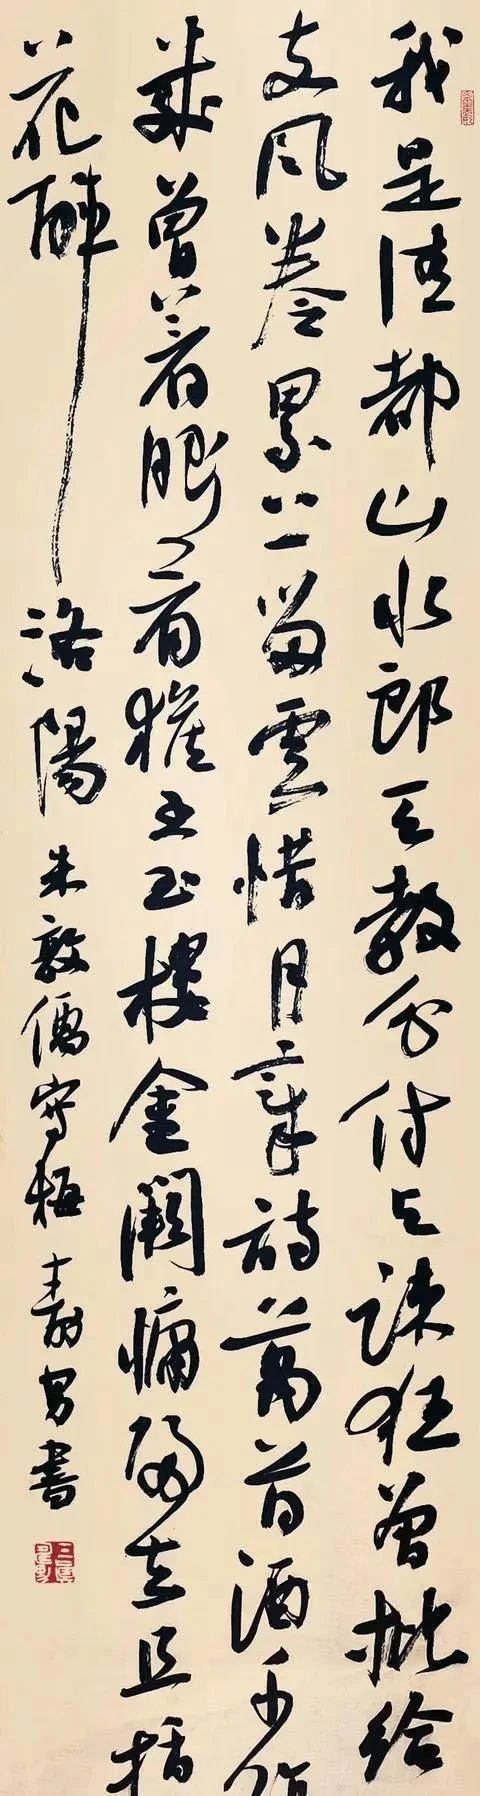 我是清都山水郎天教分付与疎狂曾批给
支风券累上留雲惜月章詩萬首酒千
幾曾着眼看猴王玉樓金闕慵歸去且插
花醉洛陽 朱敦儒寫梅 書